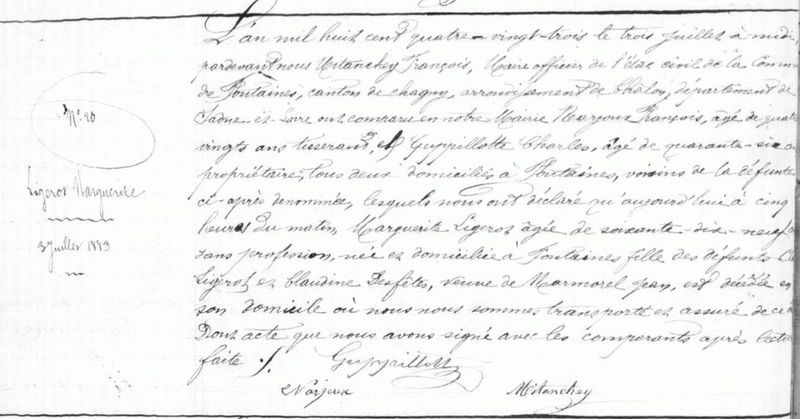 N° 20
Ligerot Marguerite
3 juillet 1883
L'an mil huit cent quatre-vingt-trois le trois juillet à midi
pardevant nous Mitanchey François, Maire officier de l'état civil de la Comm
de Fontaines, canton de Chagny, arrondissement de Châlon, département de
Saône et Loire ont comparu en notre Mairie Narjoux François, âgé de quatre
vingts ans tisserand, et Guppillotte Charles, âgé de quarante-six
propriétaire, tous deux domiciliés à Fontaines, voisins de la défunte
ci-après dénommée, lesquels nous ont déclaré qu'aujourd'hui à cinq
heures du matin, Marguerite Ligerot âgée de soixante-dix-neuf
sans profession, née et domiciliée à Fontaines fille des défunts
Ligerot et Claudine Desfêtes, veuve de Marmorel Jean, est décédée en
son domicile où nous nous sommes transporté et assuré de ce
Dont acte que nous avons signé avec les comparants après lecture
faite ./.
Guppillott
Narjeux
Mitanchey